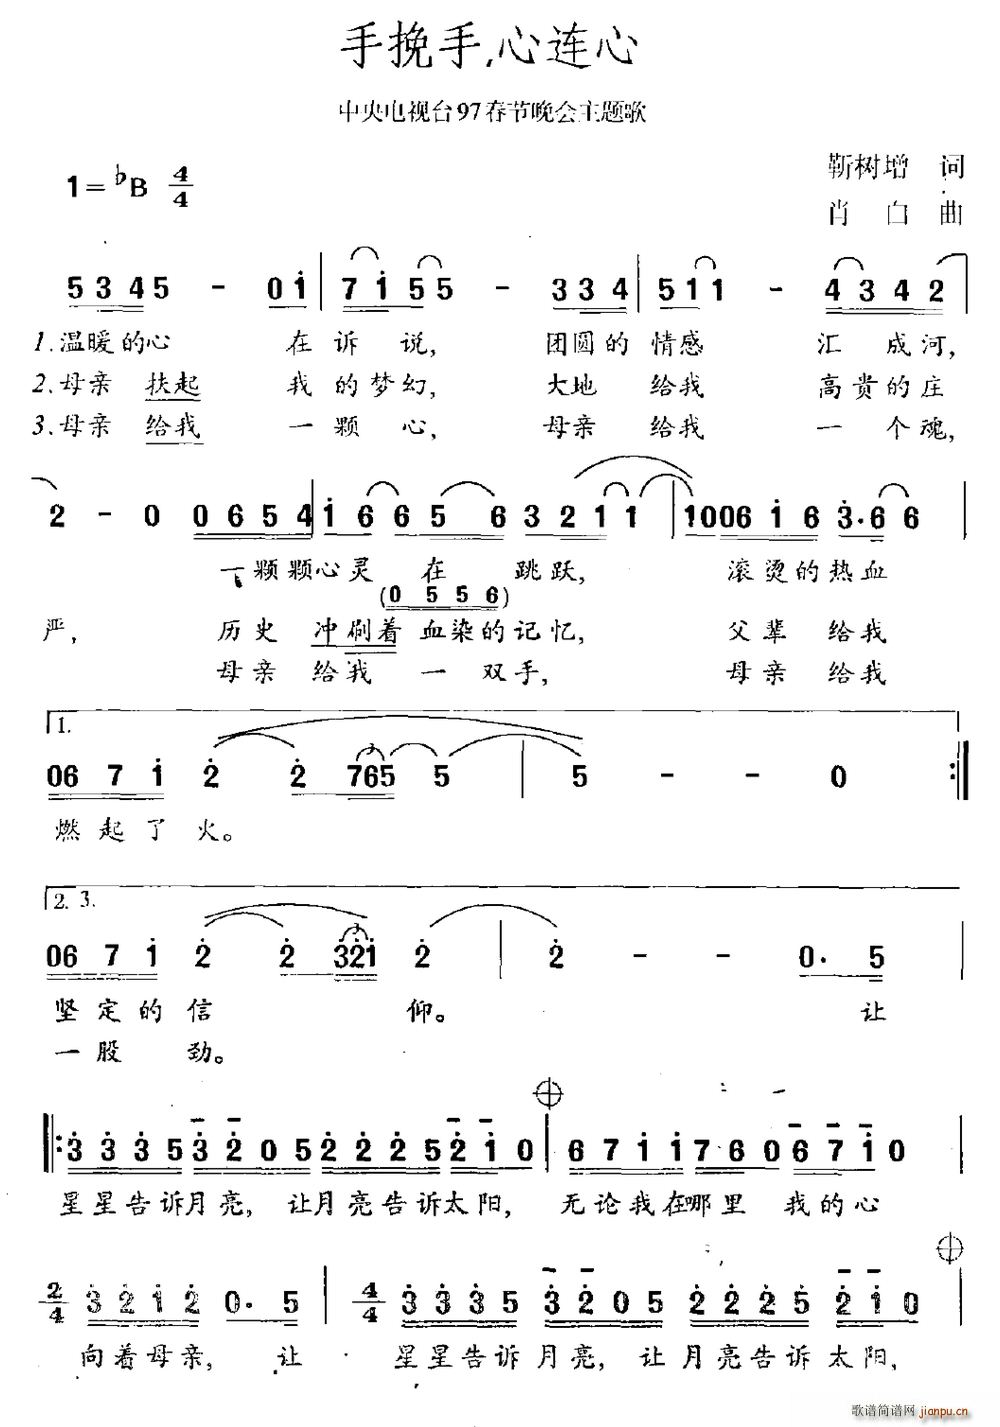 手挽手,心连心
中央电视台97春节晚会主题歌
靳树增 词
1=♭B 4/4
肖 白 曲
5 3 4 5 - 0 i | 7 i 5 5 - 3 3 4 | 5 1 1 - 4 3 4 2 |
1.温暖的心 在 诉 说, 团圆的 情感 汇 成 河,
2.母亲 扶起 我 的 梦幻, 大地 给我 高贵的庄
3.母亲 给我 一 颗 心, 母亲 给我 一 个 魂,
2 - 0 0 6 5 4 | i 6 6 5 6 3 2 1 1 | 1 0 0 6 i 6 3· 6 6 |
一颗颗心灵 在 跳跃, 滚烫的热血
(0 5 5 6)
严, 历史 冲刷着 血染的记忆, 父辈 给我
母亲 给我 一 双手, 母亲 给我
1.
0 6 7 i 2 2 7 6 5 5 | 5 - - 0 :|
3
燃起了火。
2. 3.
0 6 7 i 2 2 3 2 i 2 | 2 - - 0· 5
3
坚定的信 仰。 让
一股 劲。
|: 3 3 3 5 3 2 0 5 2 2 2 5 2 i 0 | 6 7 i i 7 6 0 6 7 i 0
星星告诉月亮, 让月亮告诉太阳, 无论我在哪里 我的心
2/4 3 2 i 2 0· 5 | 4/4 3 3 3 5 3 2 0 5 2 2 2 5 2 i 0 |
向着母亲, 让 星星告诉月亮, 让月亮告诉太阳,
歌谱简谱网
jianpu.cn